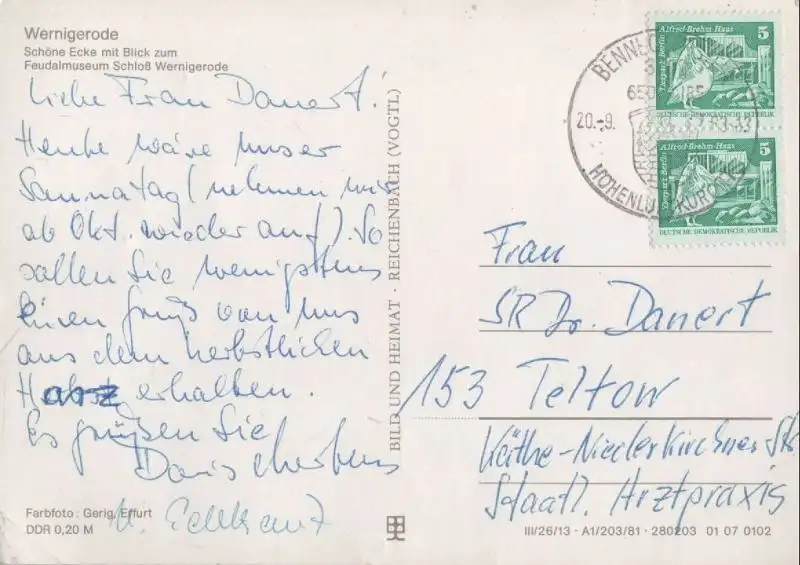 Wernigerode
Schöne Ecke mit Blick zum
Feudalmuseum Schloß Wernigerode
Liebe Frau Danert!
Heute wäre unser
Saunatag (nehmen wir
ab Okt. wieder auf). So
sollen Sie wenigstens
einen Gruß von uns
aus dem herbstlichen
Harz erhalten.
Es grüßen Sie
Doris
Farbfoto: Gerig, Erfurt
DDR 0,20 M
BILD UND HEIMAT · REICHENBACH (VOGTL)
20.-9.
Tierpark Berlin
Alfred-Brehm-Haus
5
DEUTSCHE DEMOKRATISCHE REPUBLIK
Tierpark Berlin
Alfred-Brehm-Haus
5
DEUTSCHE DEMOKRATISCHE REPUBLIK
Frau
SR Dr. Danert
153 Teltow
Käthe-Niederkirchner-Str
Staatl. Arztpraxis
III/26/13 · A1/203/81 · 280203 01 07 0102